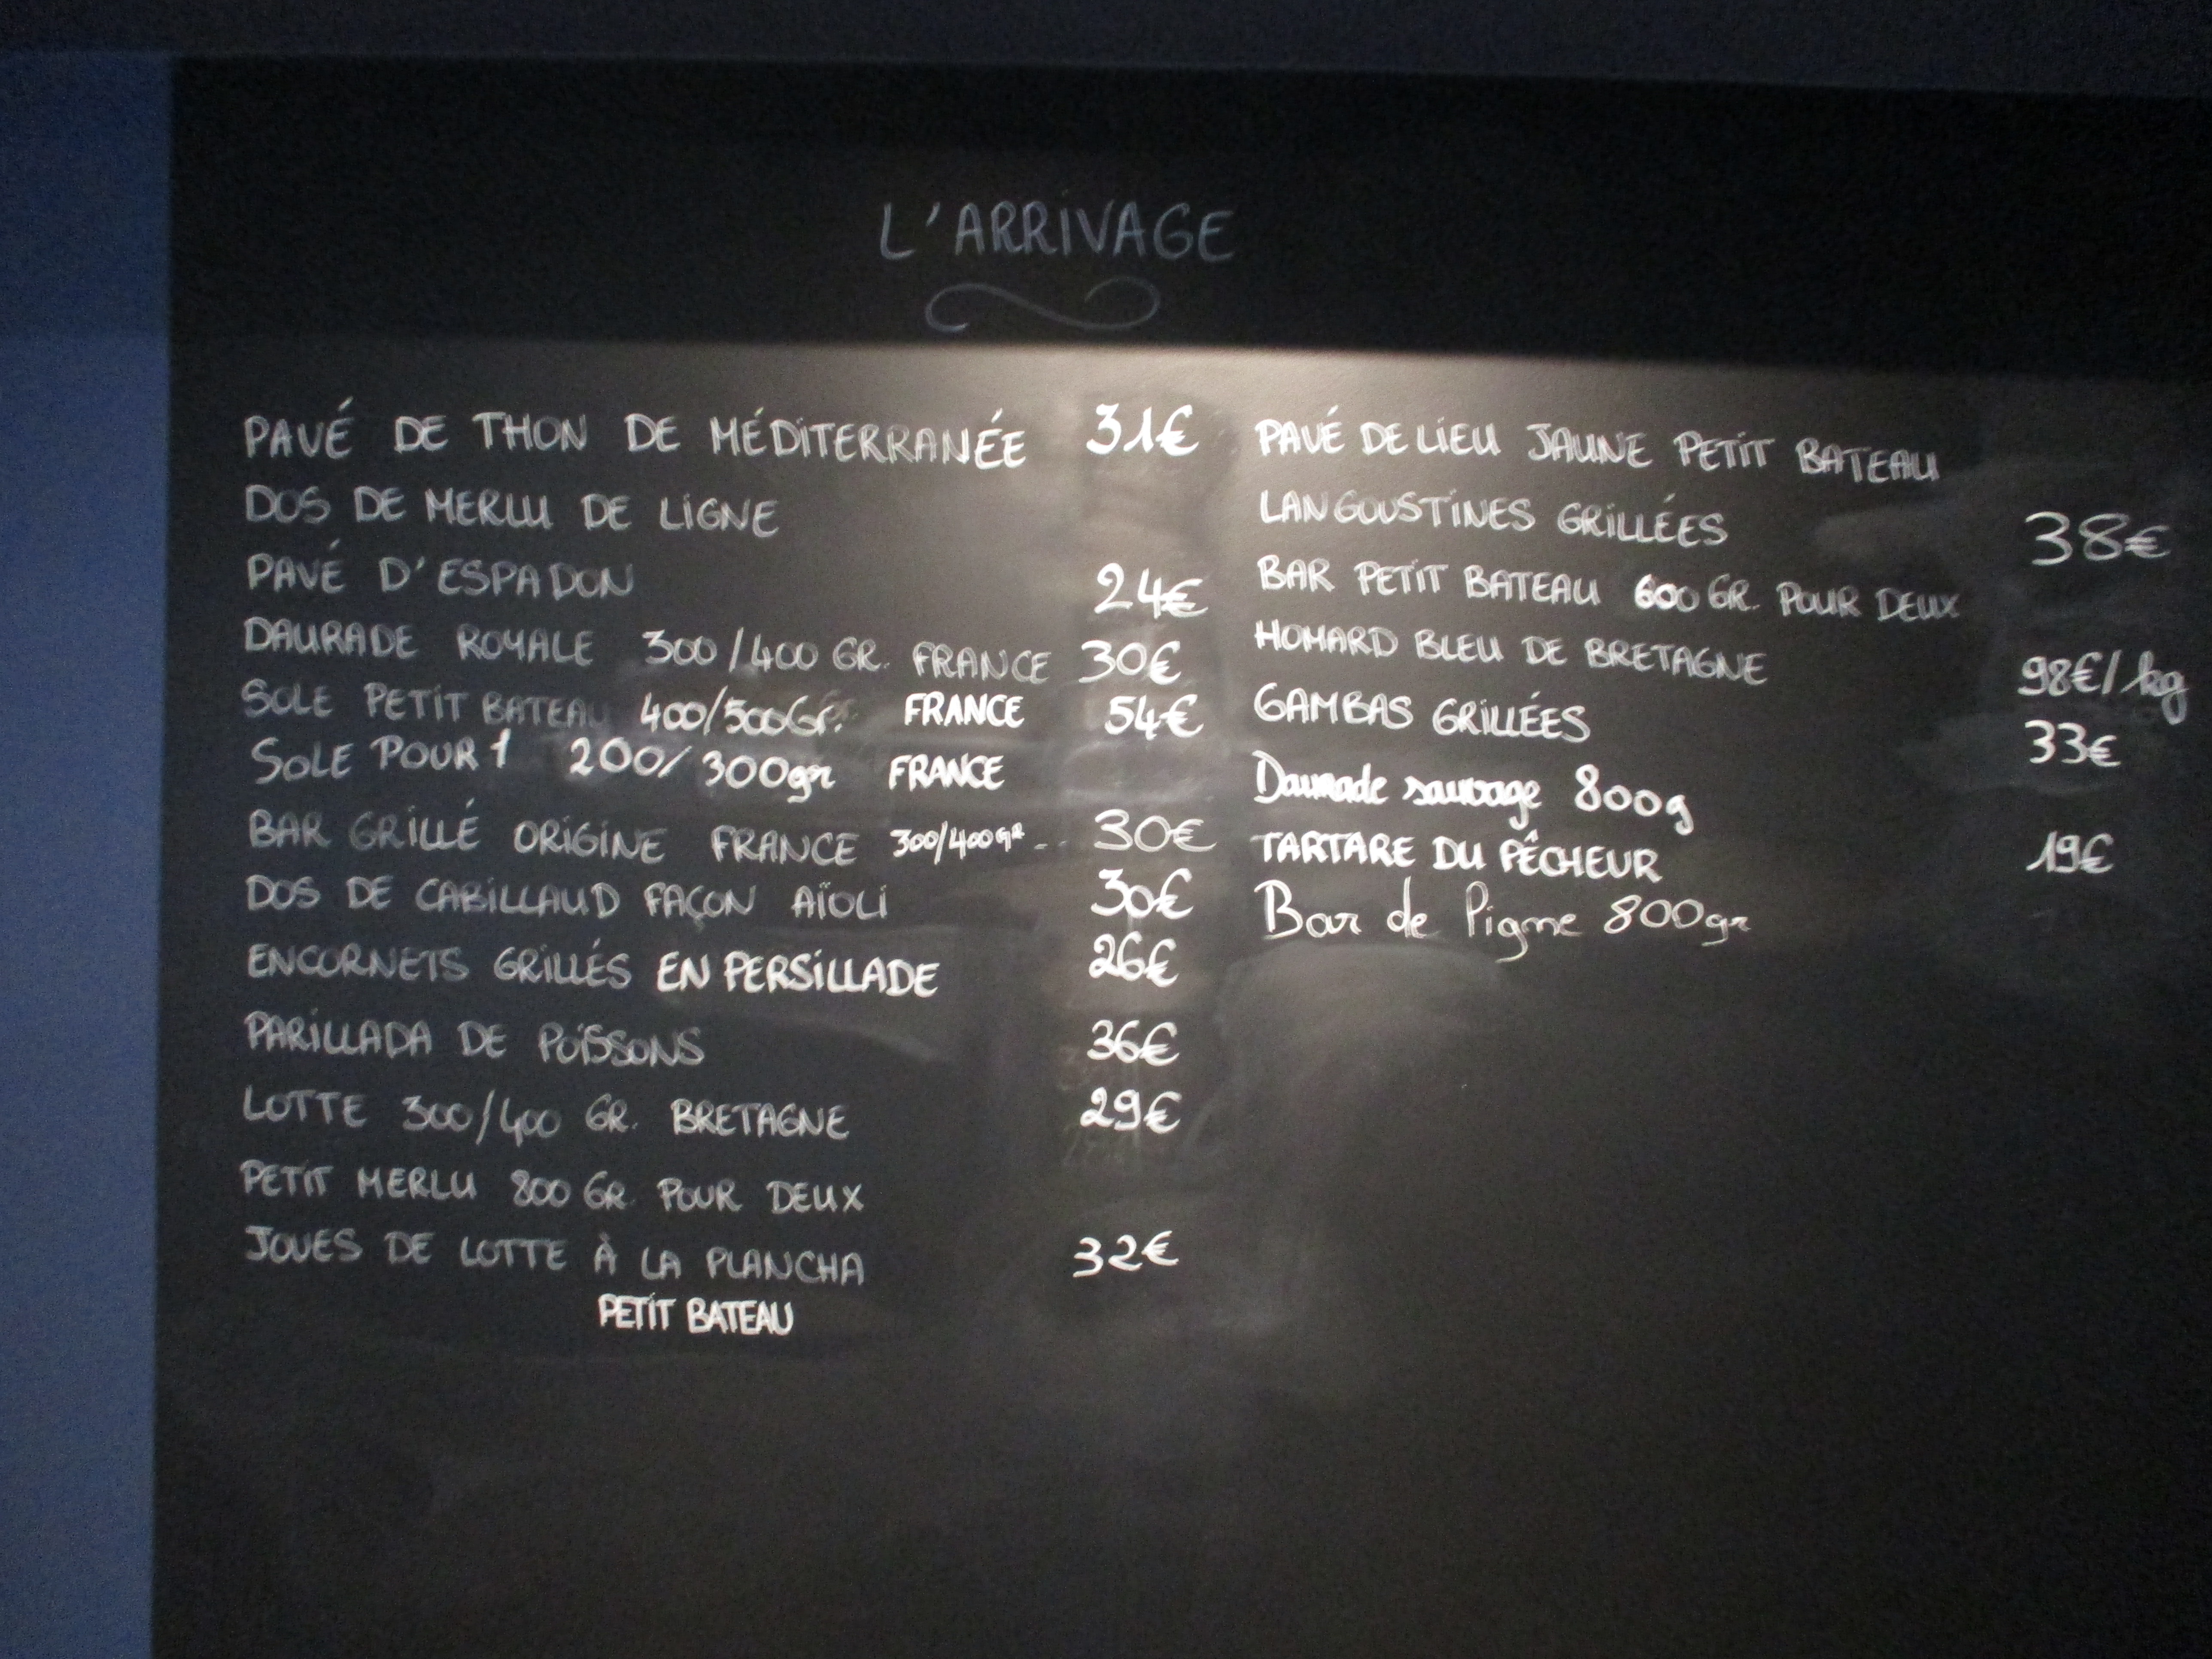 L'ARRIVAGE
PAVÉ DE THON DE MÉDITERRANÉE 31€
DOS DE MERLU DE LIGNE
PAVÉ D'ESPADON 24€
DAURADE ROYALE 300/400 GR. FRANCE 30€
SOLE PETIT BATEAU 400/500Gr. FRANCE 54€
SOLE POUR 1 200/300gr FRANCE
BAR GRILLÉ ORIGINE FRANCE 300/400GR -- 30€
DOS DE CABILLAUD FAÇON AÏOLI 30€
ENCORNETS GRILLÉS EN PERSILLADE 26€
PARILLADA DE POISSONS 36€
LOTTE 300/400 GR. BRETAGNE 29€
PETIT MERLU 800 GR. POUR DEUX
JOUES DE LOTTE À LA PLANCHA 32€
PETIT BATEAU
PAVÉ DE LIEU JAUNE PETIT BATEAU
LANGOUSTINES GRILLÉES 38€
BAR PETIT BATEAU 600 GR. POUR DEUX
HOMARD BLEU DE BRETAGNE 98€/kg
GAMBAS GRILLÉES 33€
Daurade sauvage 800g
TARTARE DU PÊCHEUR 19€
Bar de Pigne 800gr